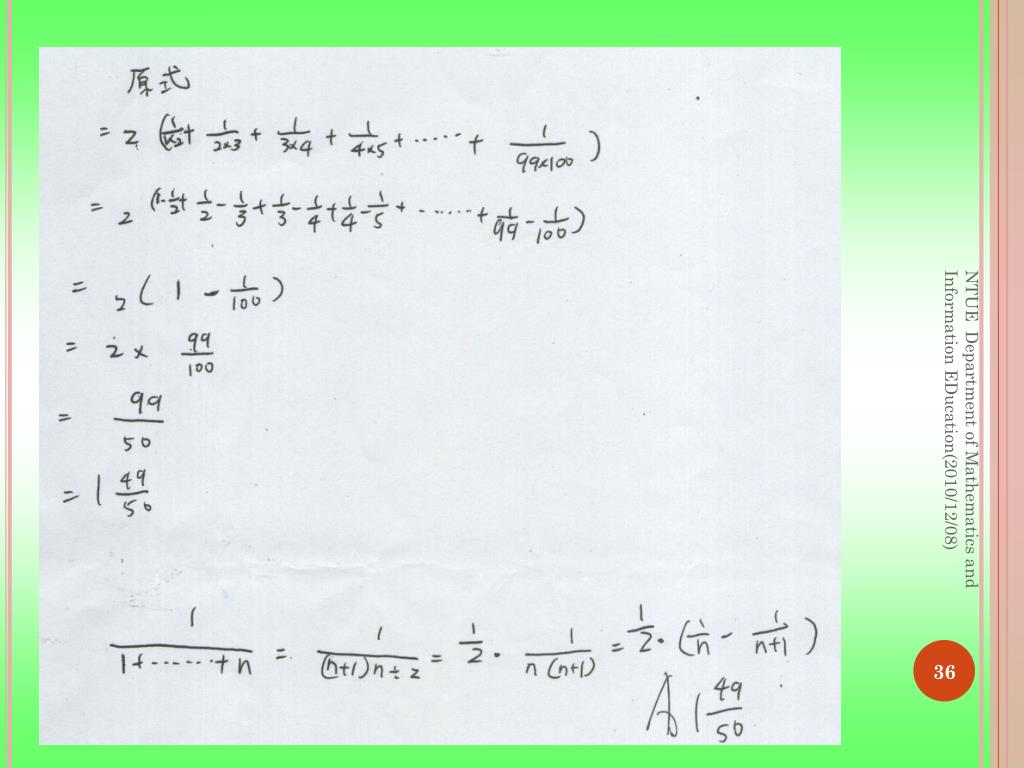 原式
= 2 (1/1×2 + 1/2×3 + 1/3×4 + 1/4×5 + ...... + 1/99×100)
= 2 (1-1/2 + 1/2 - 1/3 + 1/3 - 1/4 + 1/4 - 1/5 + ...... + 1/99 - 1/100)
= 2 (1 - 1/100)
= 2 × 99/100
= 99/50
= 1 49/50
1/1+......+n = 1/(n+1)n÷2 = 1/2 · 1/n(n+1) = 1/2 · (1/n - 1/n+1)
A 1 49/50
NTUE Department of Mathematics and
Information EDucation(2010/12/08)
36